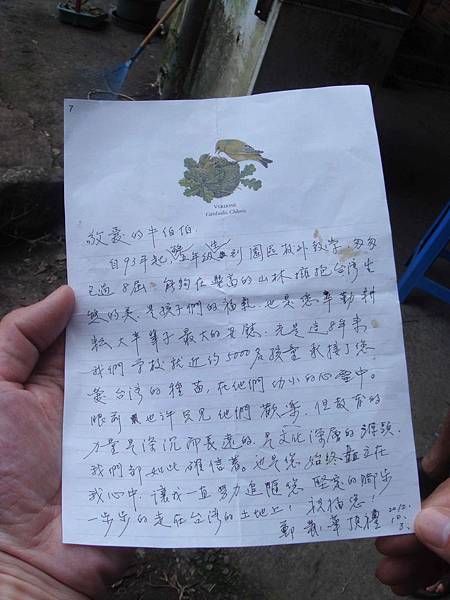 7
VERDONE
Carduelis Chloris
敬愛的牛伯伯
自93年起 年級 到園區校外教學,匆匆
已過8屆,能夠在豐富的山林擁抱台灣生
態的美,是孩子們的福氣,也是您辛勤耕
耘大半輩子最大的安慰.尤是這8年來
我們學校就近約5000名孩童承接了您
台灣的種苗,在他們幼小的心靈中。
眼前也許只見他們歡樂,但教育的
力量是深沉而長遠的,是文化深層的源頭.
我們都如此確信著。也是您始終矗立在
我心中,讓我一直努力追隨您堅定的腳步
一步步的走在台灣的土地上!祝福您!
鄭 華 頂禮 2012.
10.
3.